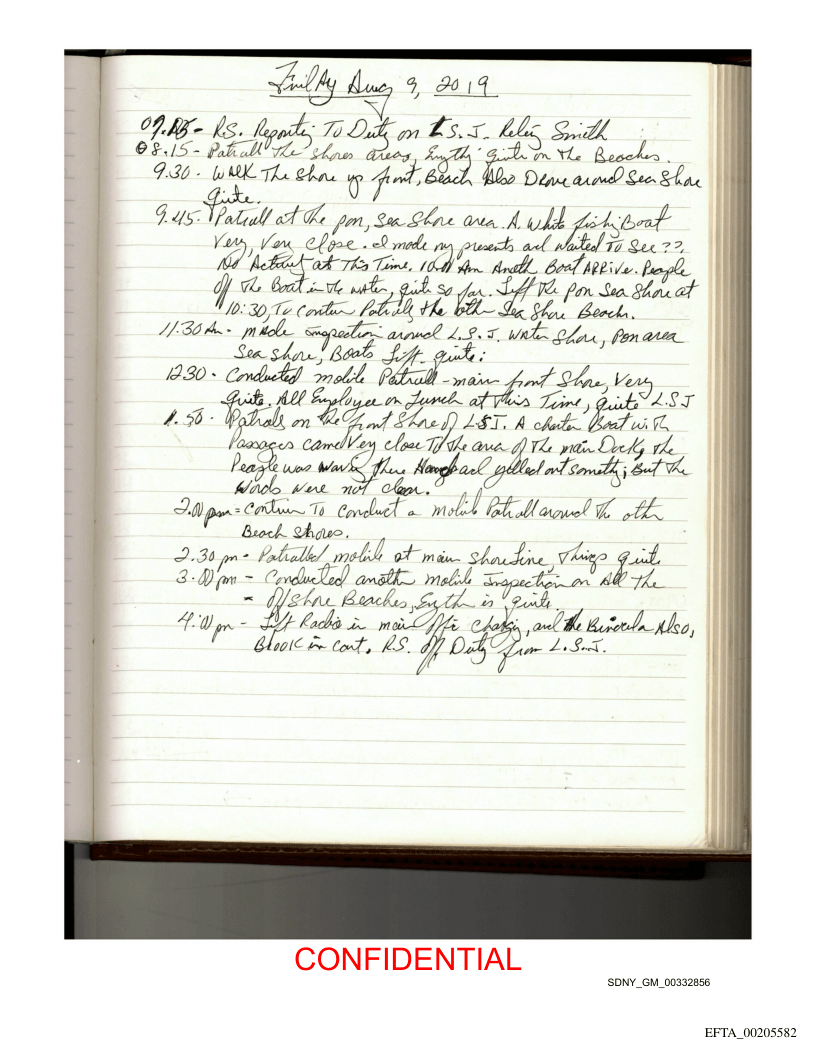 Friday Aug 9, 2019
R.S. Reporting To Duty on L.S.J. Smith
08.15 - Patrall The Shores areas, quite on the Beaches.
9.30 - WALK The Shore up front, Beach Also Drove around Sea Shore
quite.
9.45. Patrall at the pon, Sea Shore area. A. White fishing Boat
Very, Very close. I made my presents and waited To See ??.
No Activity at This Time. Am Boat ARRive. People
off the Boat in the water, quite so far. Left the pon Sea Shore at
10:30, To the other Sea Shore Beachs.
11.30 Am - made Inspection around L.S.J. Water Shore, Pon area
Sea Shore, Boats Left quite;
12.30 - Conducted mobile Patrall - main front Shore, Very
quite. All Employee on Lunch at this Time, quite L.S.J
1.50 - Patrols on the front Shore of L.S.J. A charter Boat with
came Very close To the area of the main Dock, the
People was waving there and yelled out ; But the
Words were not clear.
2.00 pm = To Conduct a mobile Patrall around the other
Beach Shores.
2.30 pm - Patralled mobile at main Shore Line, things quite
3.00 pm - Conducted another mobile Inspection on All The
- off Shore Beaches, is quite.
4:00 pm - Left Radio in main charging, and the Also,
in cart. R.S. off Duty from L.S.J.
CONFIDENTIAL
SDNY_GM_00332856
EFTA_00205582